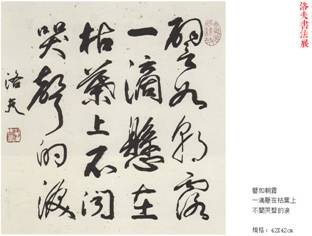 洛夫書法展
譬如朝露
一滴懸在
枯葉上不聞
哭聲的淚
洛夫
譬如朝露
一滴懸在枯葉上
不聞哭聲的淚
規格：42X42cm